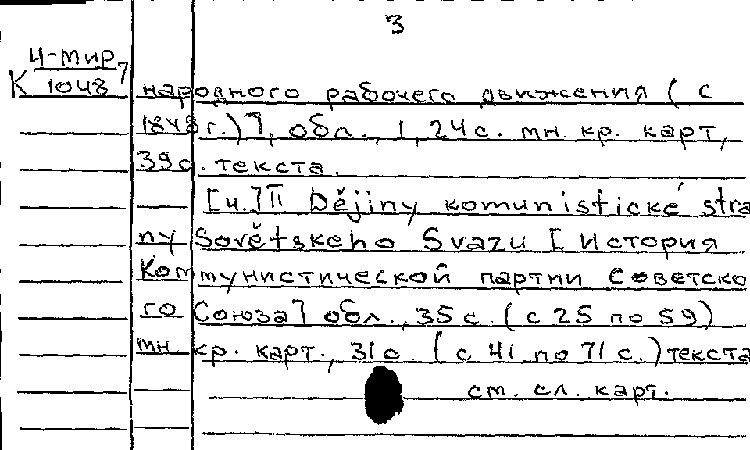 3
Ч-мир
К 1048 7
народного рабочего движения (с
1848 г.)], обл., 1, 24 с. мн. кр. карт,
39 с. текста.
[ч.] II Dějiny komunistické stra
ny Sovětskeho Svazu [История
Коммунистической партии Советско
го Союза] обл., 35 с. (с 25 по 59)
мн. кр. карт., 31 с. (с 41 по 71 с.) текста
см. сл. карт.